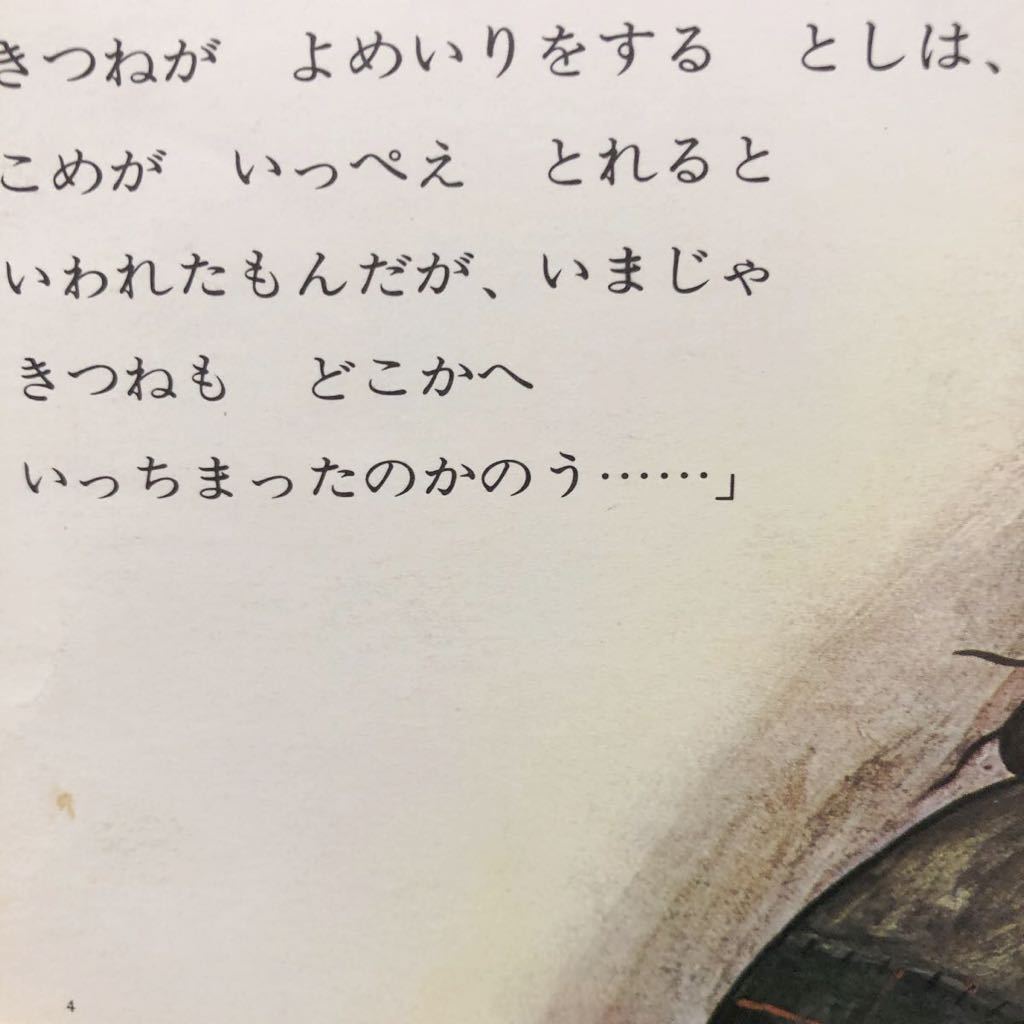 きつねが　よめいりをする　としは、
こめが　いっぺえ　とれると
いわれたもんだが、いまじゃ
きつねも　どこかへ
いっちまったのかのう……」
4